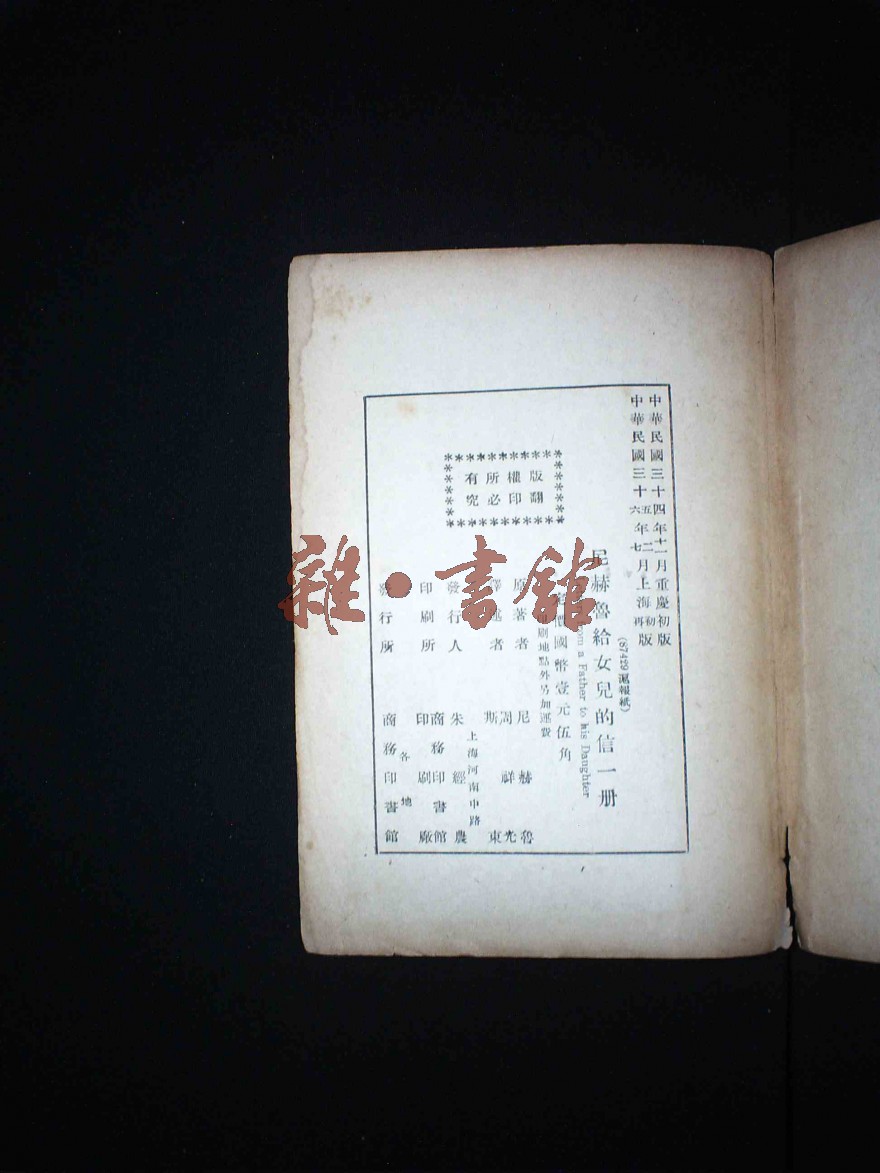 中華民國三十四年十一月重慶初版
中華民國三十五六年二七月上海初再版
(87429滬報紙)
尼赫魯給女兒的信一册
a Father to his Daughter
價國幣壹元伍角
刷地點外另加運費
版權所有
翻印必究
原著者 尼赫魯
譯述者 周祥光 斯東
發行人 朱經農
上海河南中路
印刷所 商務印書館 印刷廠
發行所 各地 商務印書館
雜·書館